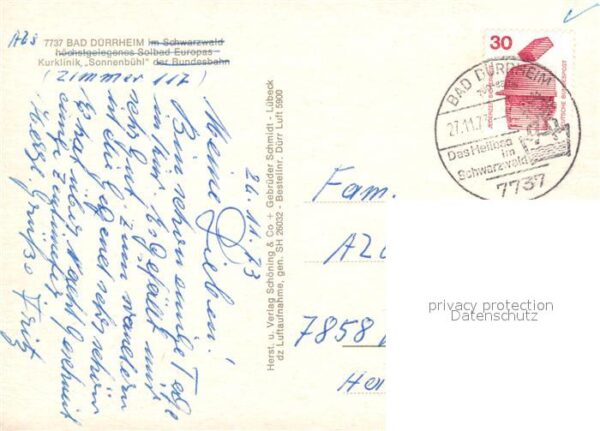 Abs
7737 BAD DÜRRHEIM im Schwarzwald
höchstgelegenes Solbad Europas
Kurklinik „Sonnenbühl" der Bundesbahn
(Zimmer 117)
26.11.73
Meine Lieben!
Bin schon einige Tage
in Kur. Es gefällt mir
sehr gut zum wandern
ist die Gegend sehr schön
Es hat über Nacht geschneit
einige Zentimeter
Herzl. Grüße Fritz
Herst. u. Verlag Schöning & Co + Gebrüder Schmidt - Lübeck
dz Luftaufnahme, gen. SH 26032 - Bestellnr. Dürr Luft 5900
30
DEUTSCHE BUNDESPOST
BAD DÜRRHEIM
27.11.7
Das Heilbad
im
Schwarzwald
7737
Fam.
7858
privacy protection
Datenschutz